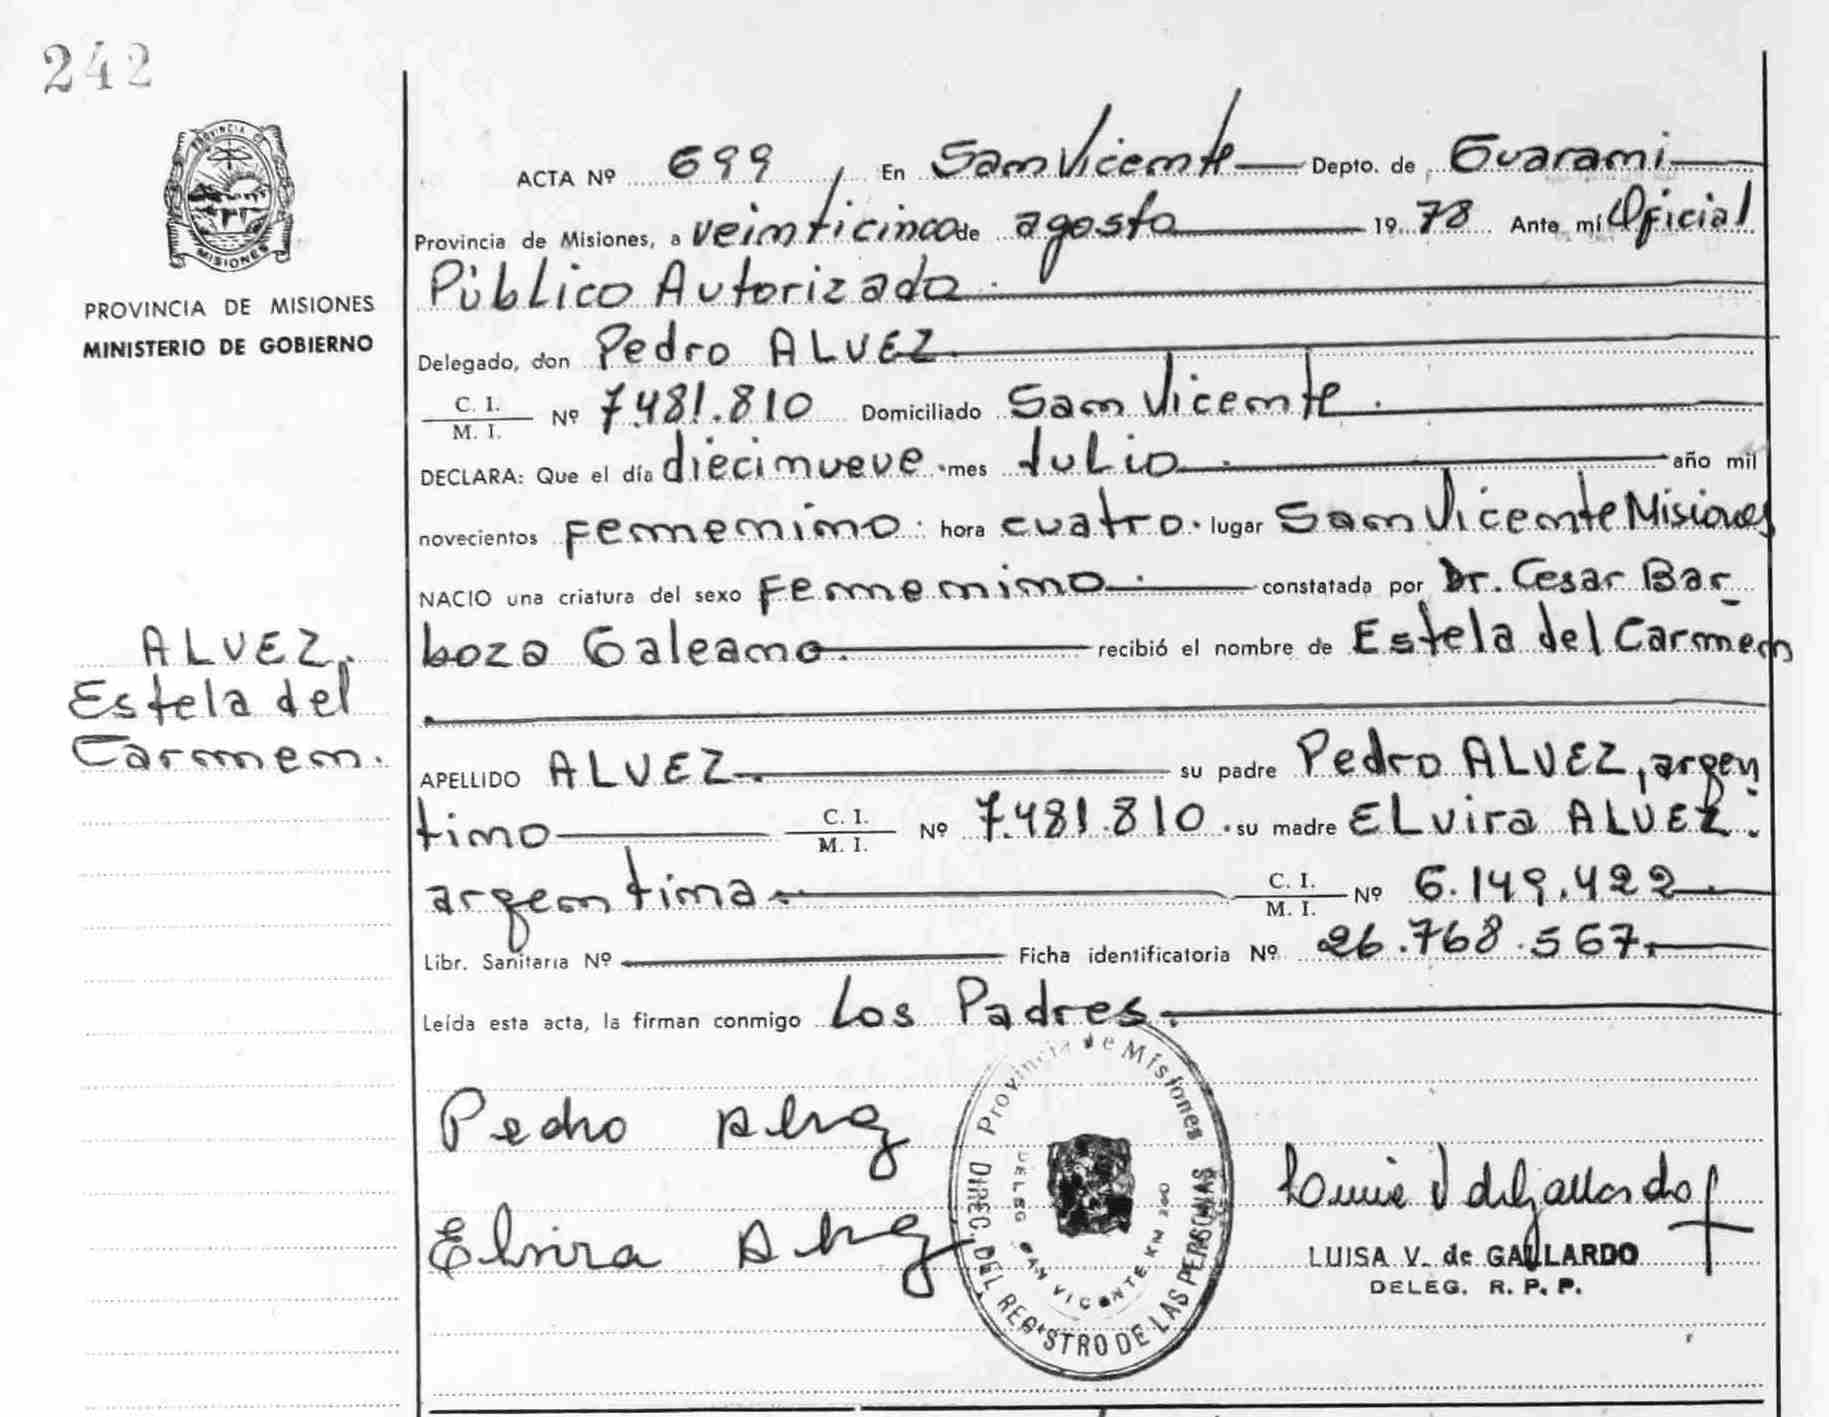 242
PROVINCIA DE MISIONES
PROVINCIA DE MISIONES
MINISTERIO DE GOBIERNO
ALVEZ,
Estela del
Carmen.
ACTA Nº 699 En San Vicente Depto. de Guarani
Provincia de Misiones, a veinticinco de agosto 19 78 Ante mí Oficial
Público Autorizado.
Delegado, don Pedro ALVEZ.
C. I. / M. I. Nº 7.481.810 Domiciliado San Vicente.
DECLARA: Que el día diecinueve mes Julio. año mil
novecientos femenino. hora cuatro. lugar San Vicente Misiones
NACIO una criatura del sexo femenino. constatada por Dr. Cesar Bar
boza Galeano. recibió el nombre de Estela del Carmen
APELLIDO ALVEZ. su padre Pedro ALVEZ, argen
tino C. I. / M. I. Nº 7.481.810. su madre ELvira ALVEZ.
argentina. C. I. / M. I. Nº 6.149.422.
Libr. Sanitaria Nº Ficha identificatoria Nº 26.768.567.
Leída esta acta, la firman conmigo Los Padres.
Provincia de Misiones
DIREC. DEL REGISTRO DE LAS PERSONAS
DELEG. SAN VICENTE KM
Pedro Alvez
Elvira Alvez
Luisa V de Gallardo
LUISA V. de GALLARDO
DELEG. R. P. P.